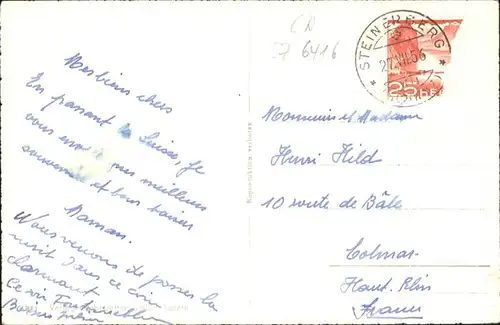 CR
6416
STEINERBERG
27.VII.56
25
Mes biens chers
En passant la Suisse, je
vous envoie mes meilleurs
souvenirs et bons baisers
Maman.
Nous venons de passer la
nuit dans ce coin
charmant
Ce soir Fontainebleau
Bons
Reproduktion verboten
Monsieur et Madame
Henri Hild
10 route de Bâle
Colmar
Haut. Rhin
France